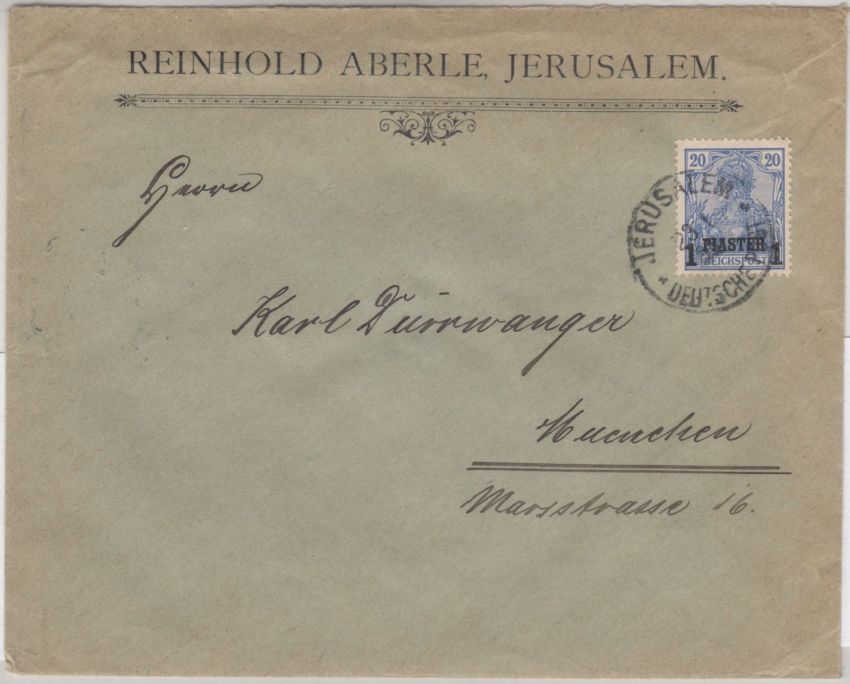 REINHOLD ABERLE, JERUSALEM.
Herrn
20 20
1 PIASTER 1
REICHSPOST
JERUSALEM
23
DEUTSCHE POST
Karl Duorwanger
Muenchen
Marsstrasse 16.